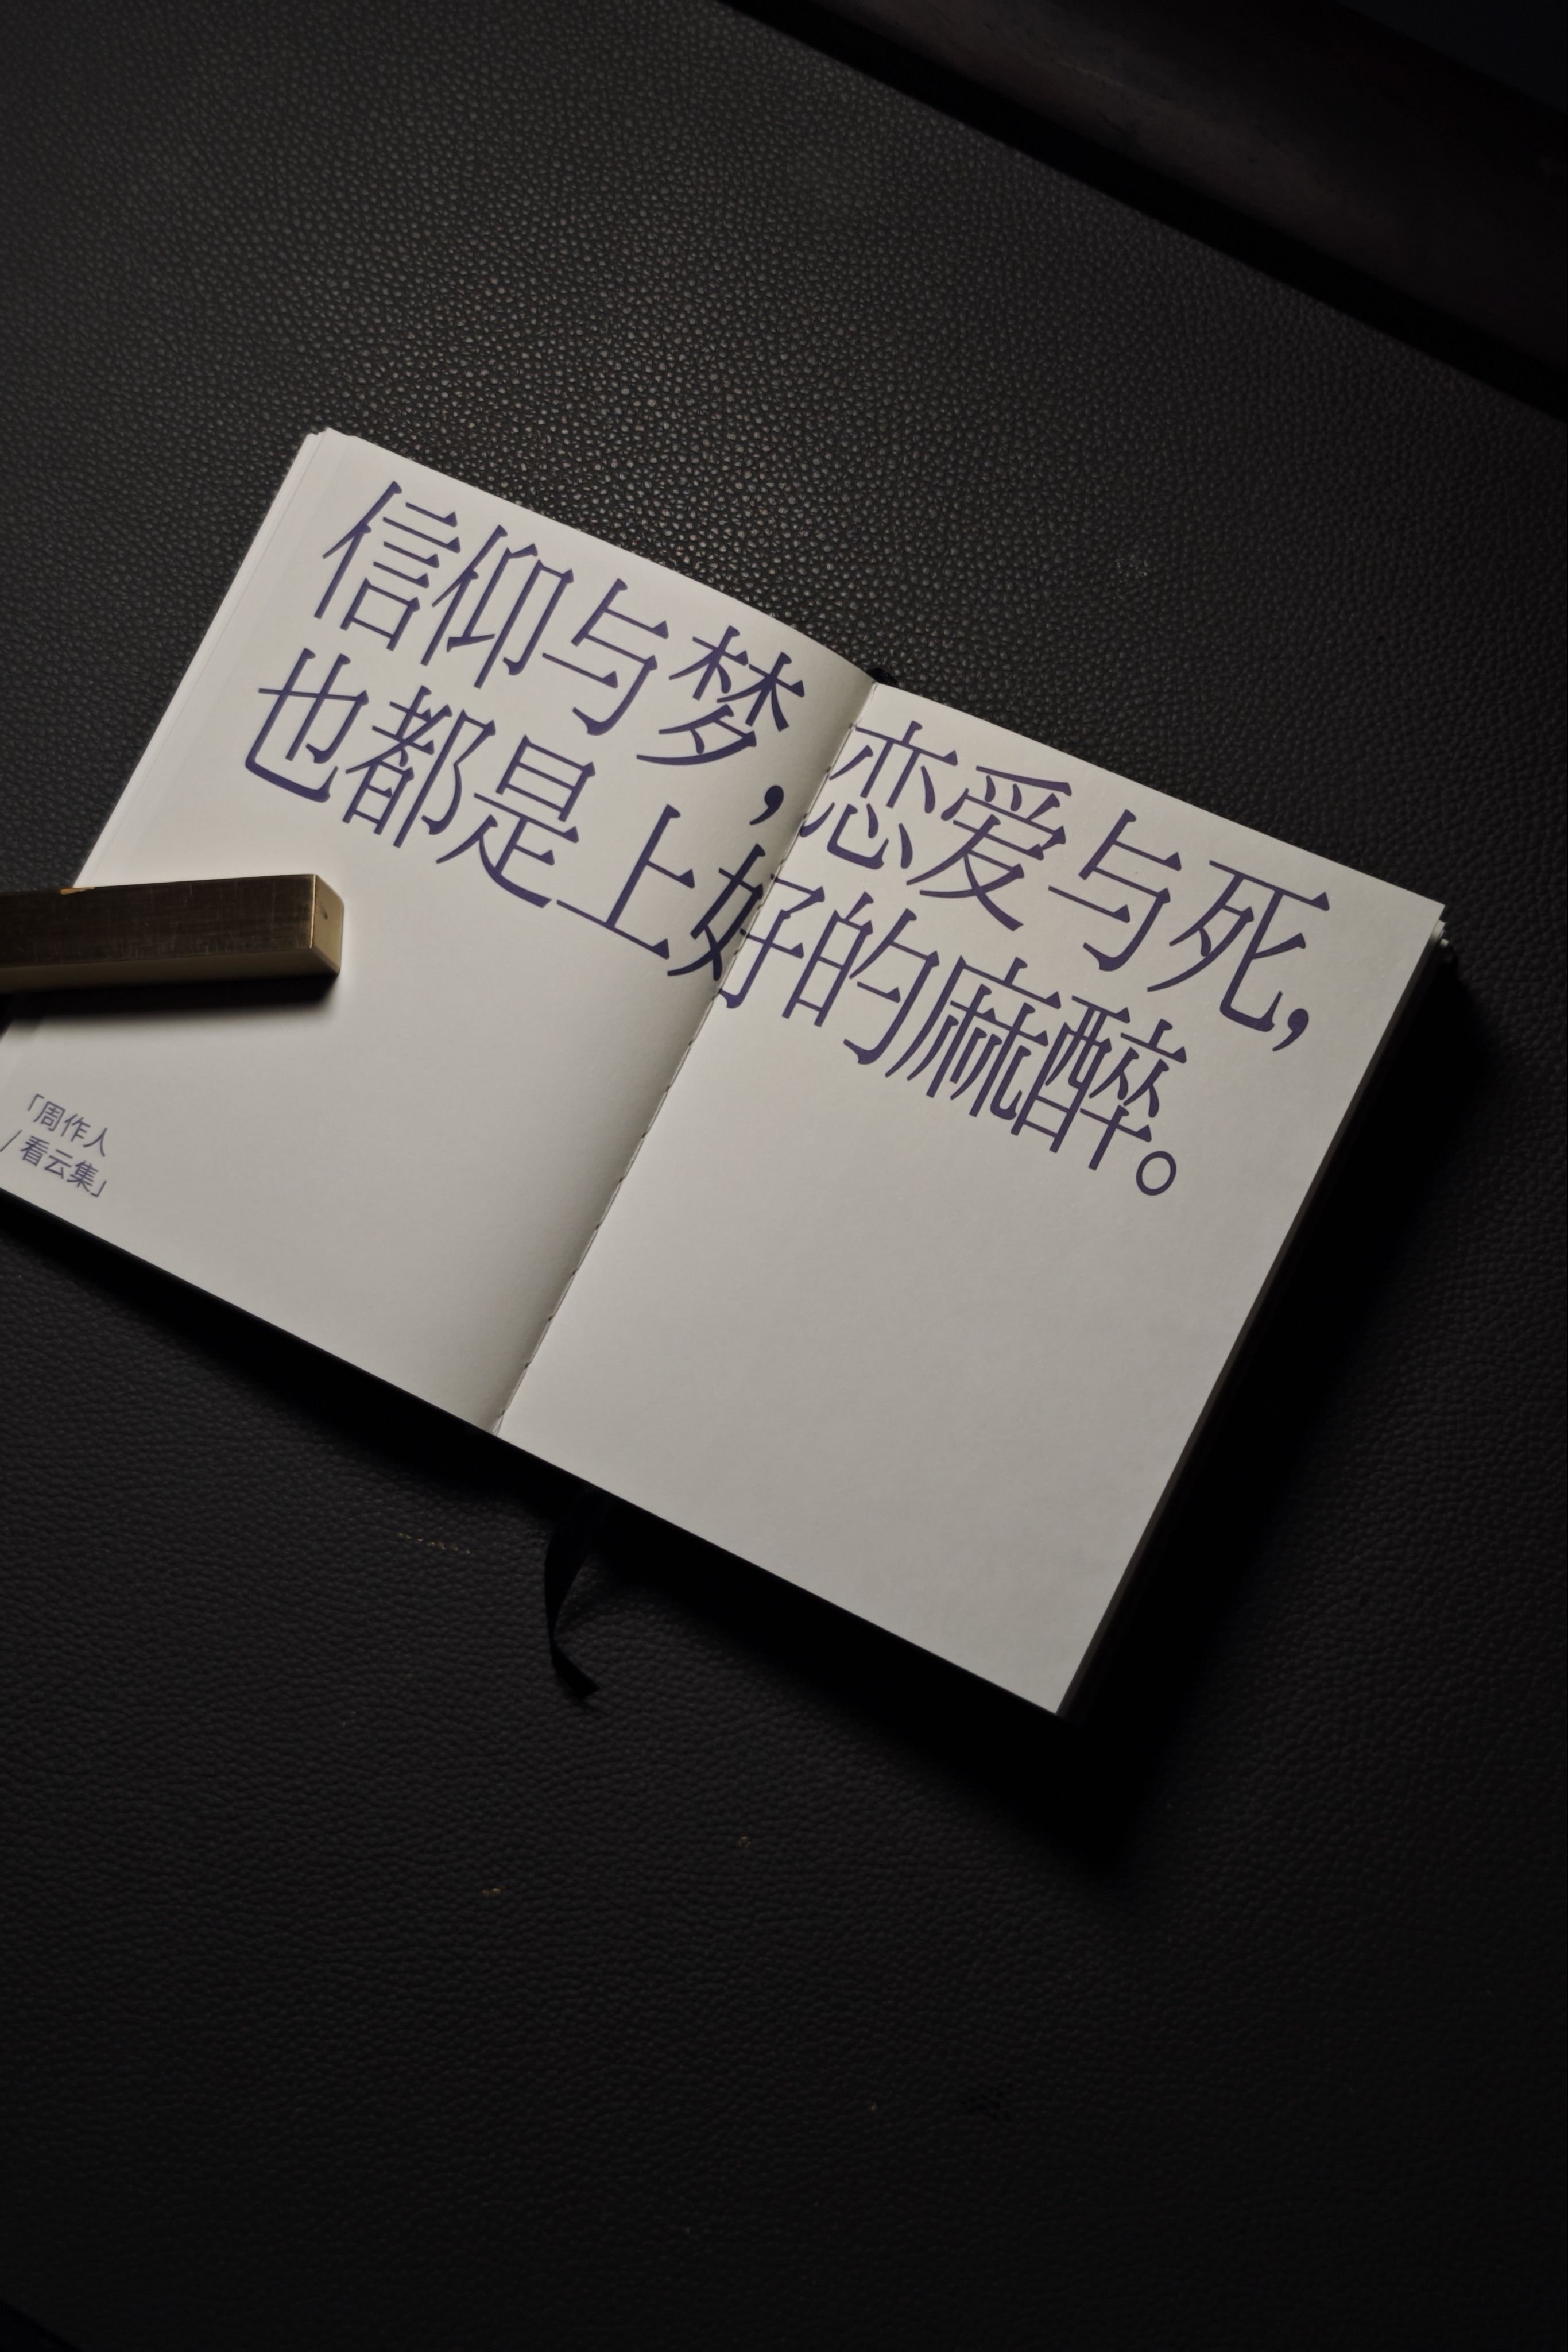 信仰与梦，恋爱与死，
也都是上好的麻醉。
「周作人
/看云集」